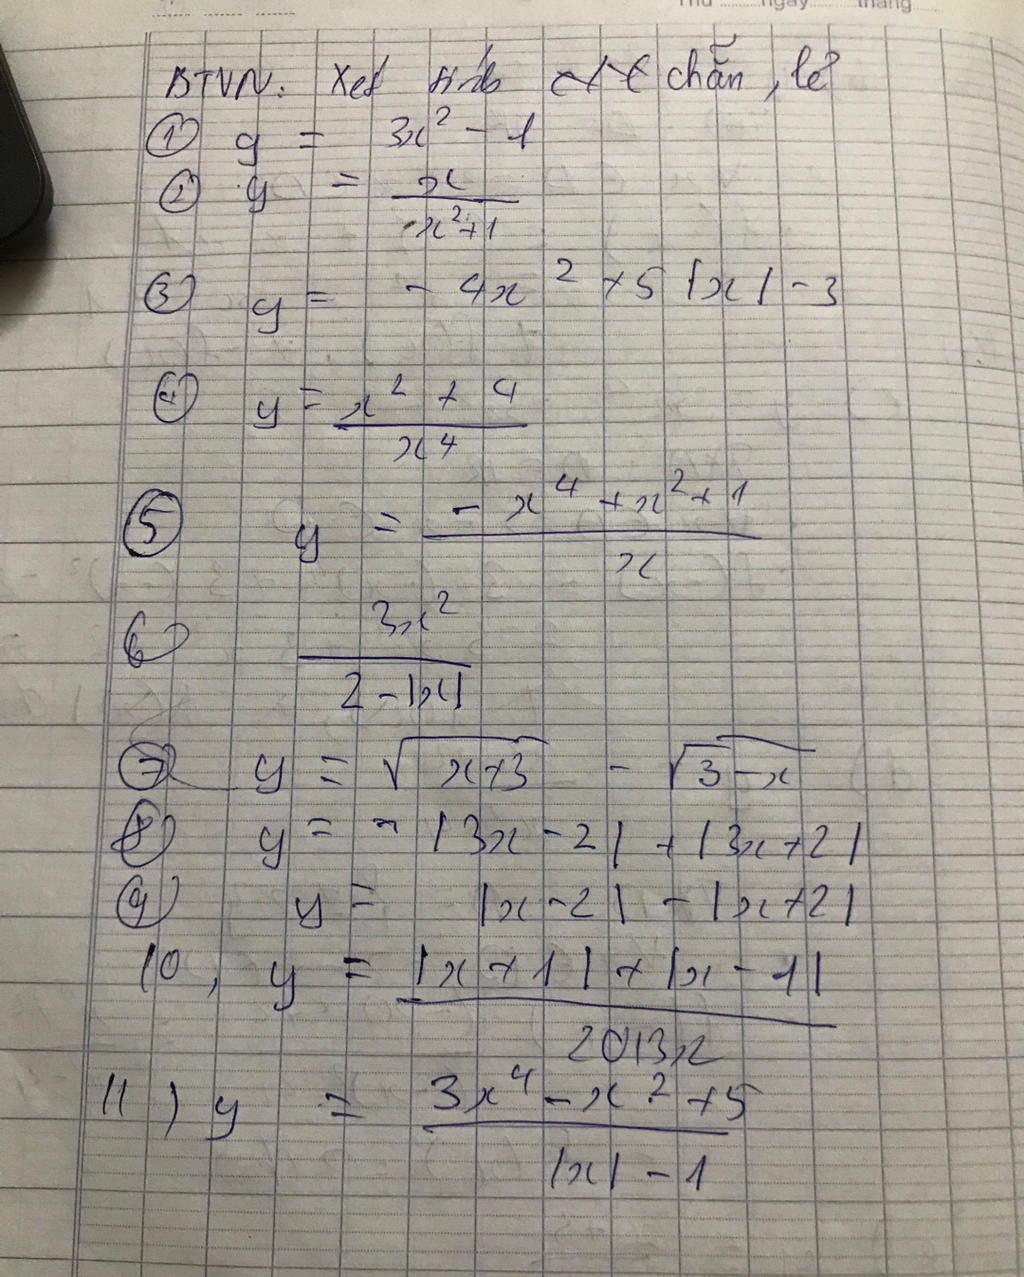 Thứ ........ ngày ........ tháng
BTVN. Xét tính chẵn, lẻ
① y = 3x² - 1
② y = x / (x² + 1)
③ y = - 4x² + 5 |x| - 3
④ y = (x² + 4) / x⁴
⑤ y = (- x⁴ + x² + 1) / x
⑥ 3x² / (2 - |x|)
⑦ y = √(x+3) - √(3 - x)
⑧ y = - |3x - 2| + |3x + 2|
⑨ y = |x - 2| - |x + 2|
10, y = (|x + 1| + |x - 1|) / 2013x
11) y = (3x⁴ - x² + 5) / (|x| - 1)